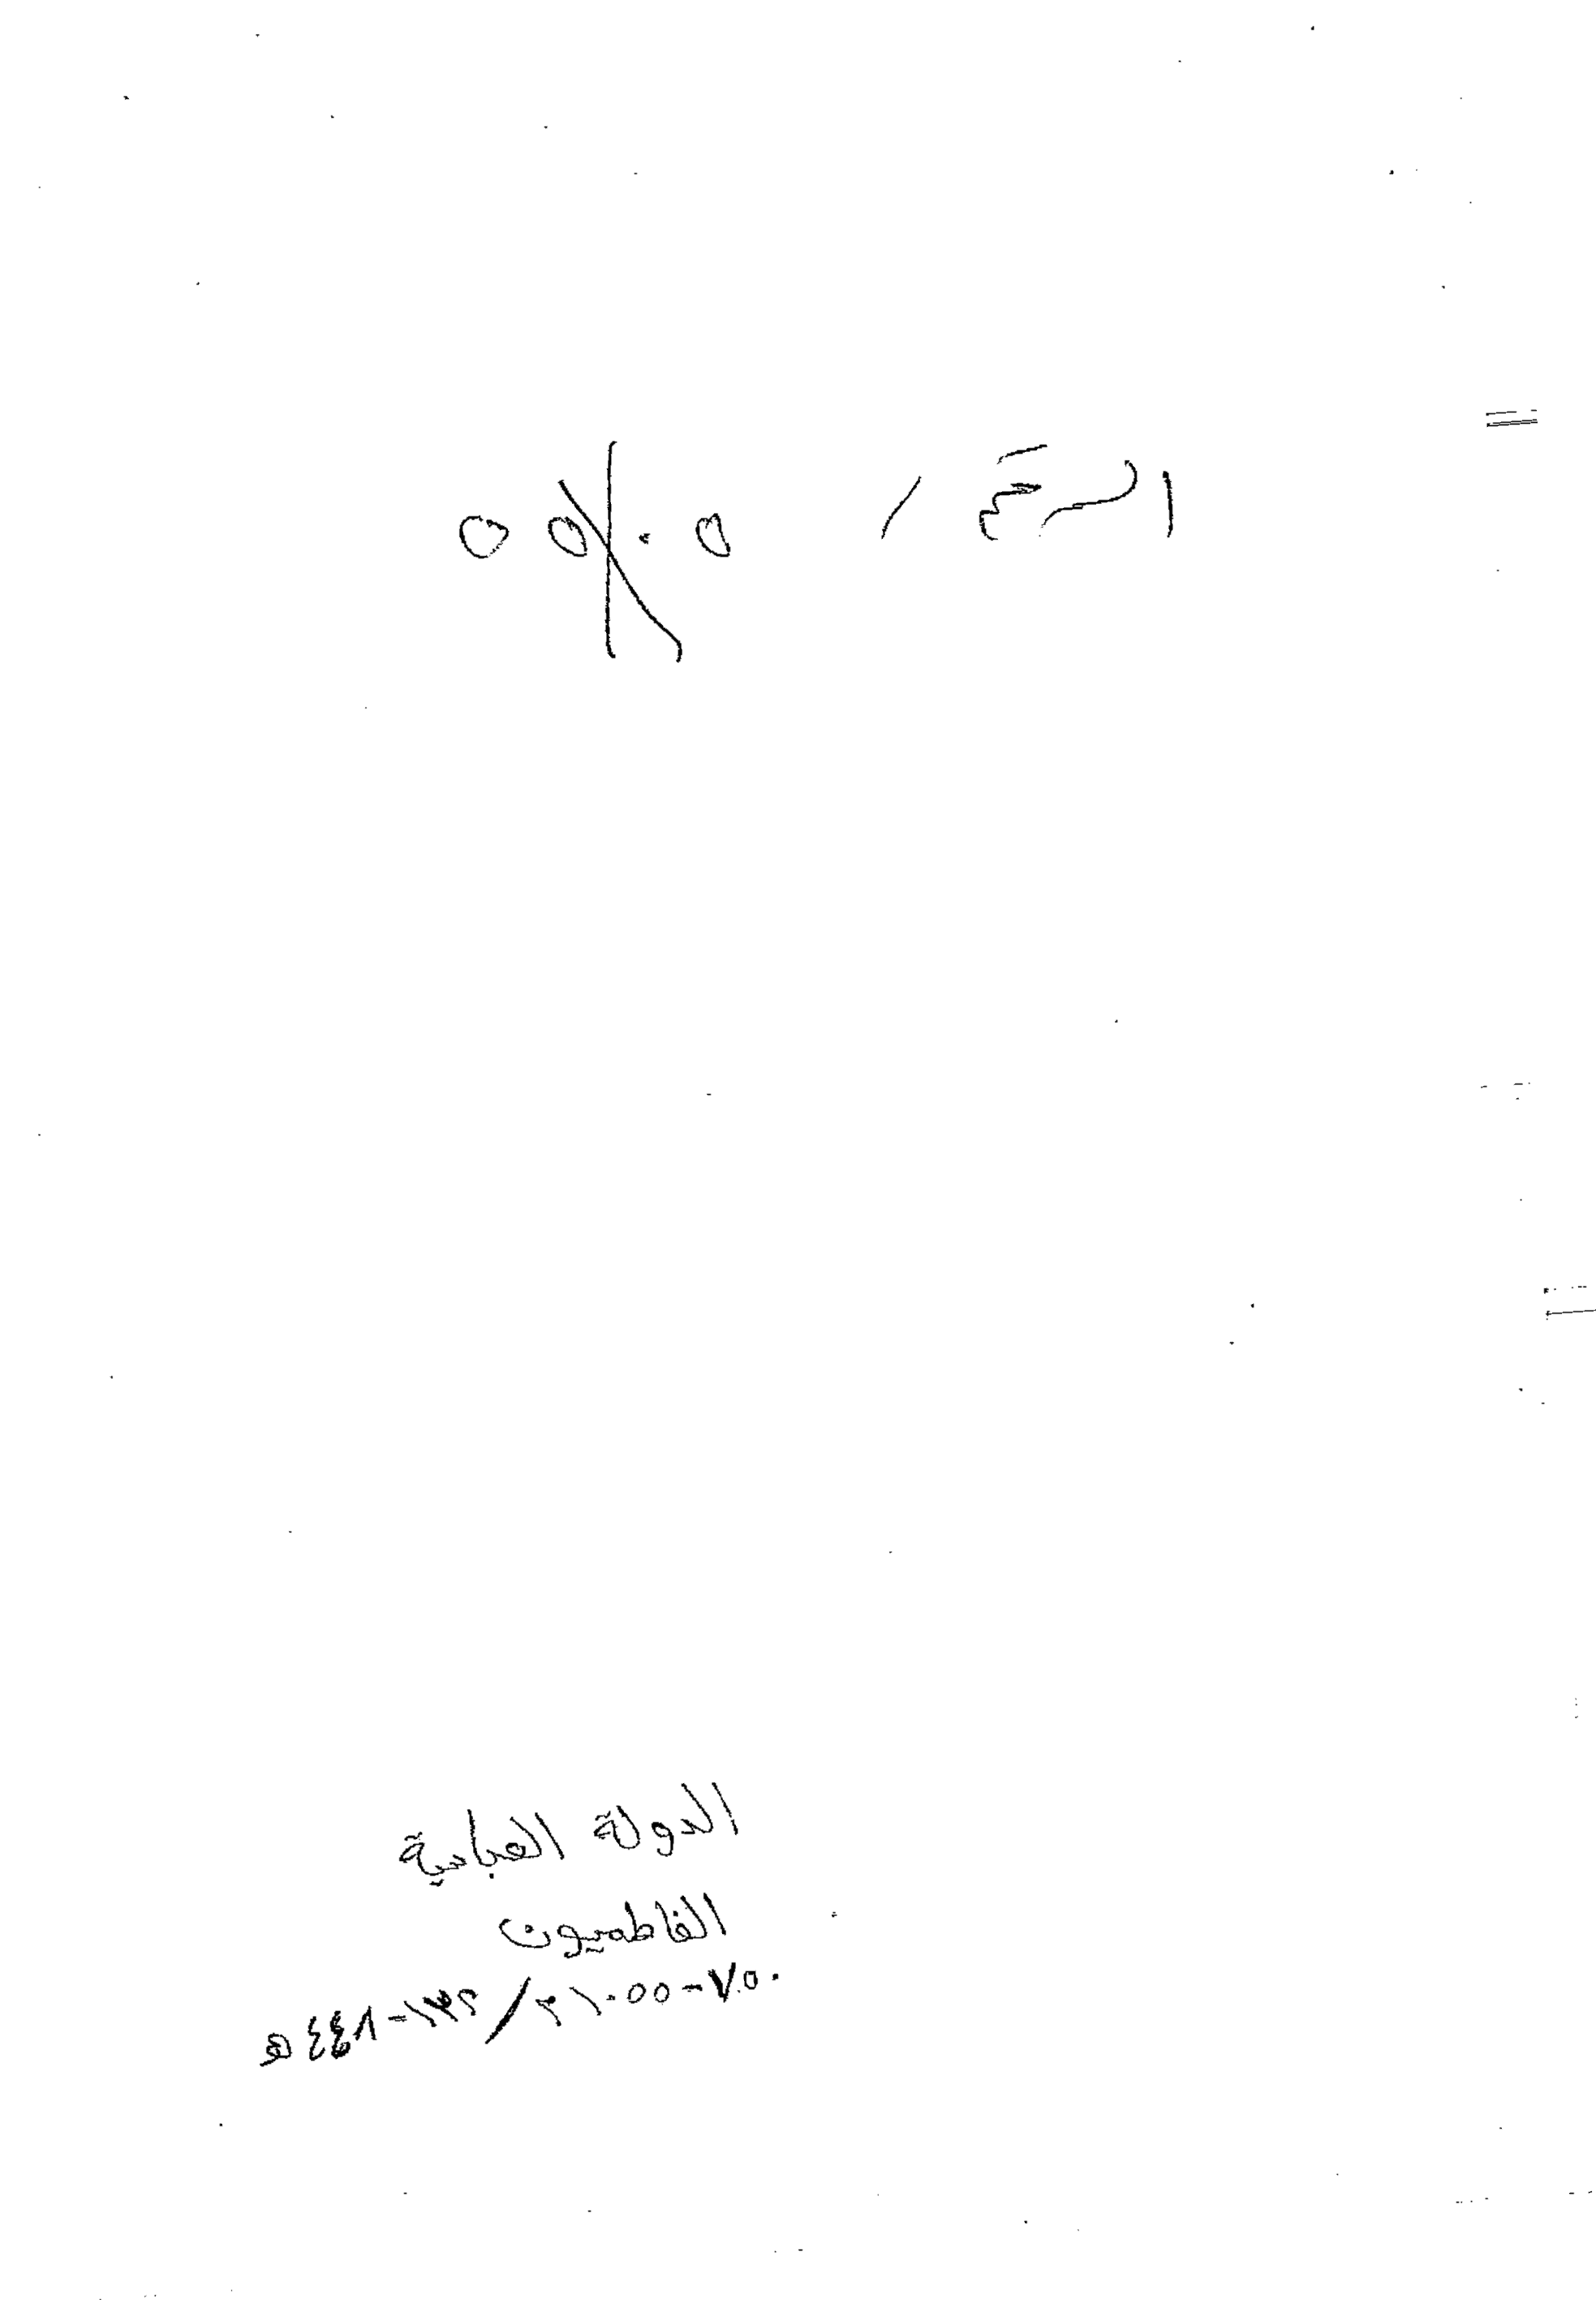 الرقم /
الدولة العباسية
الفاطميون
٧٥٠-١٠٥٥م / ١٣٢-٤٤٨هـ